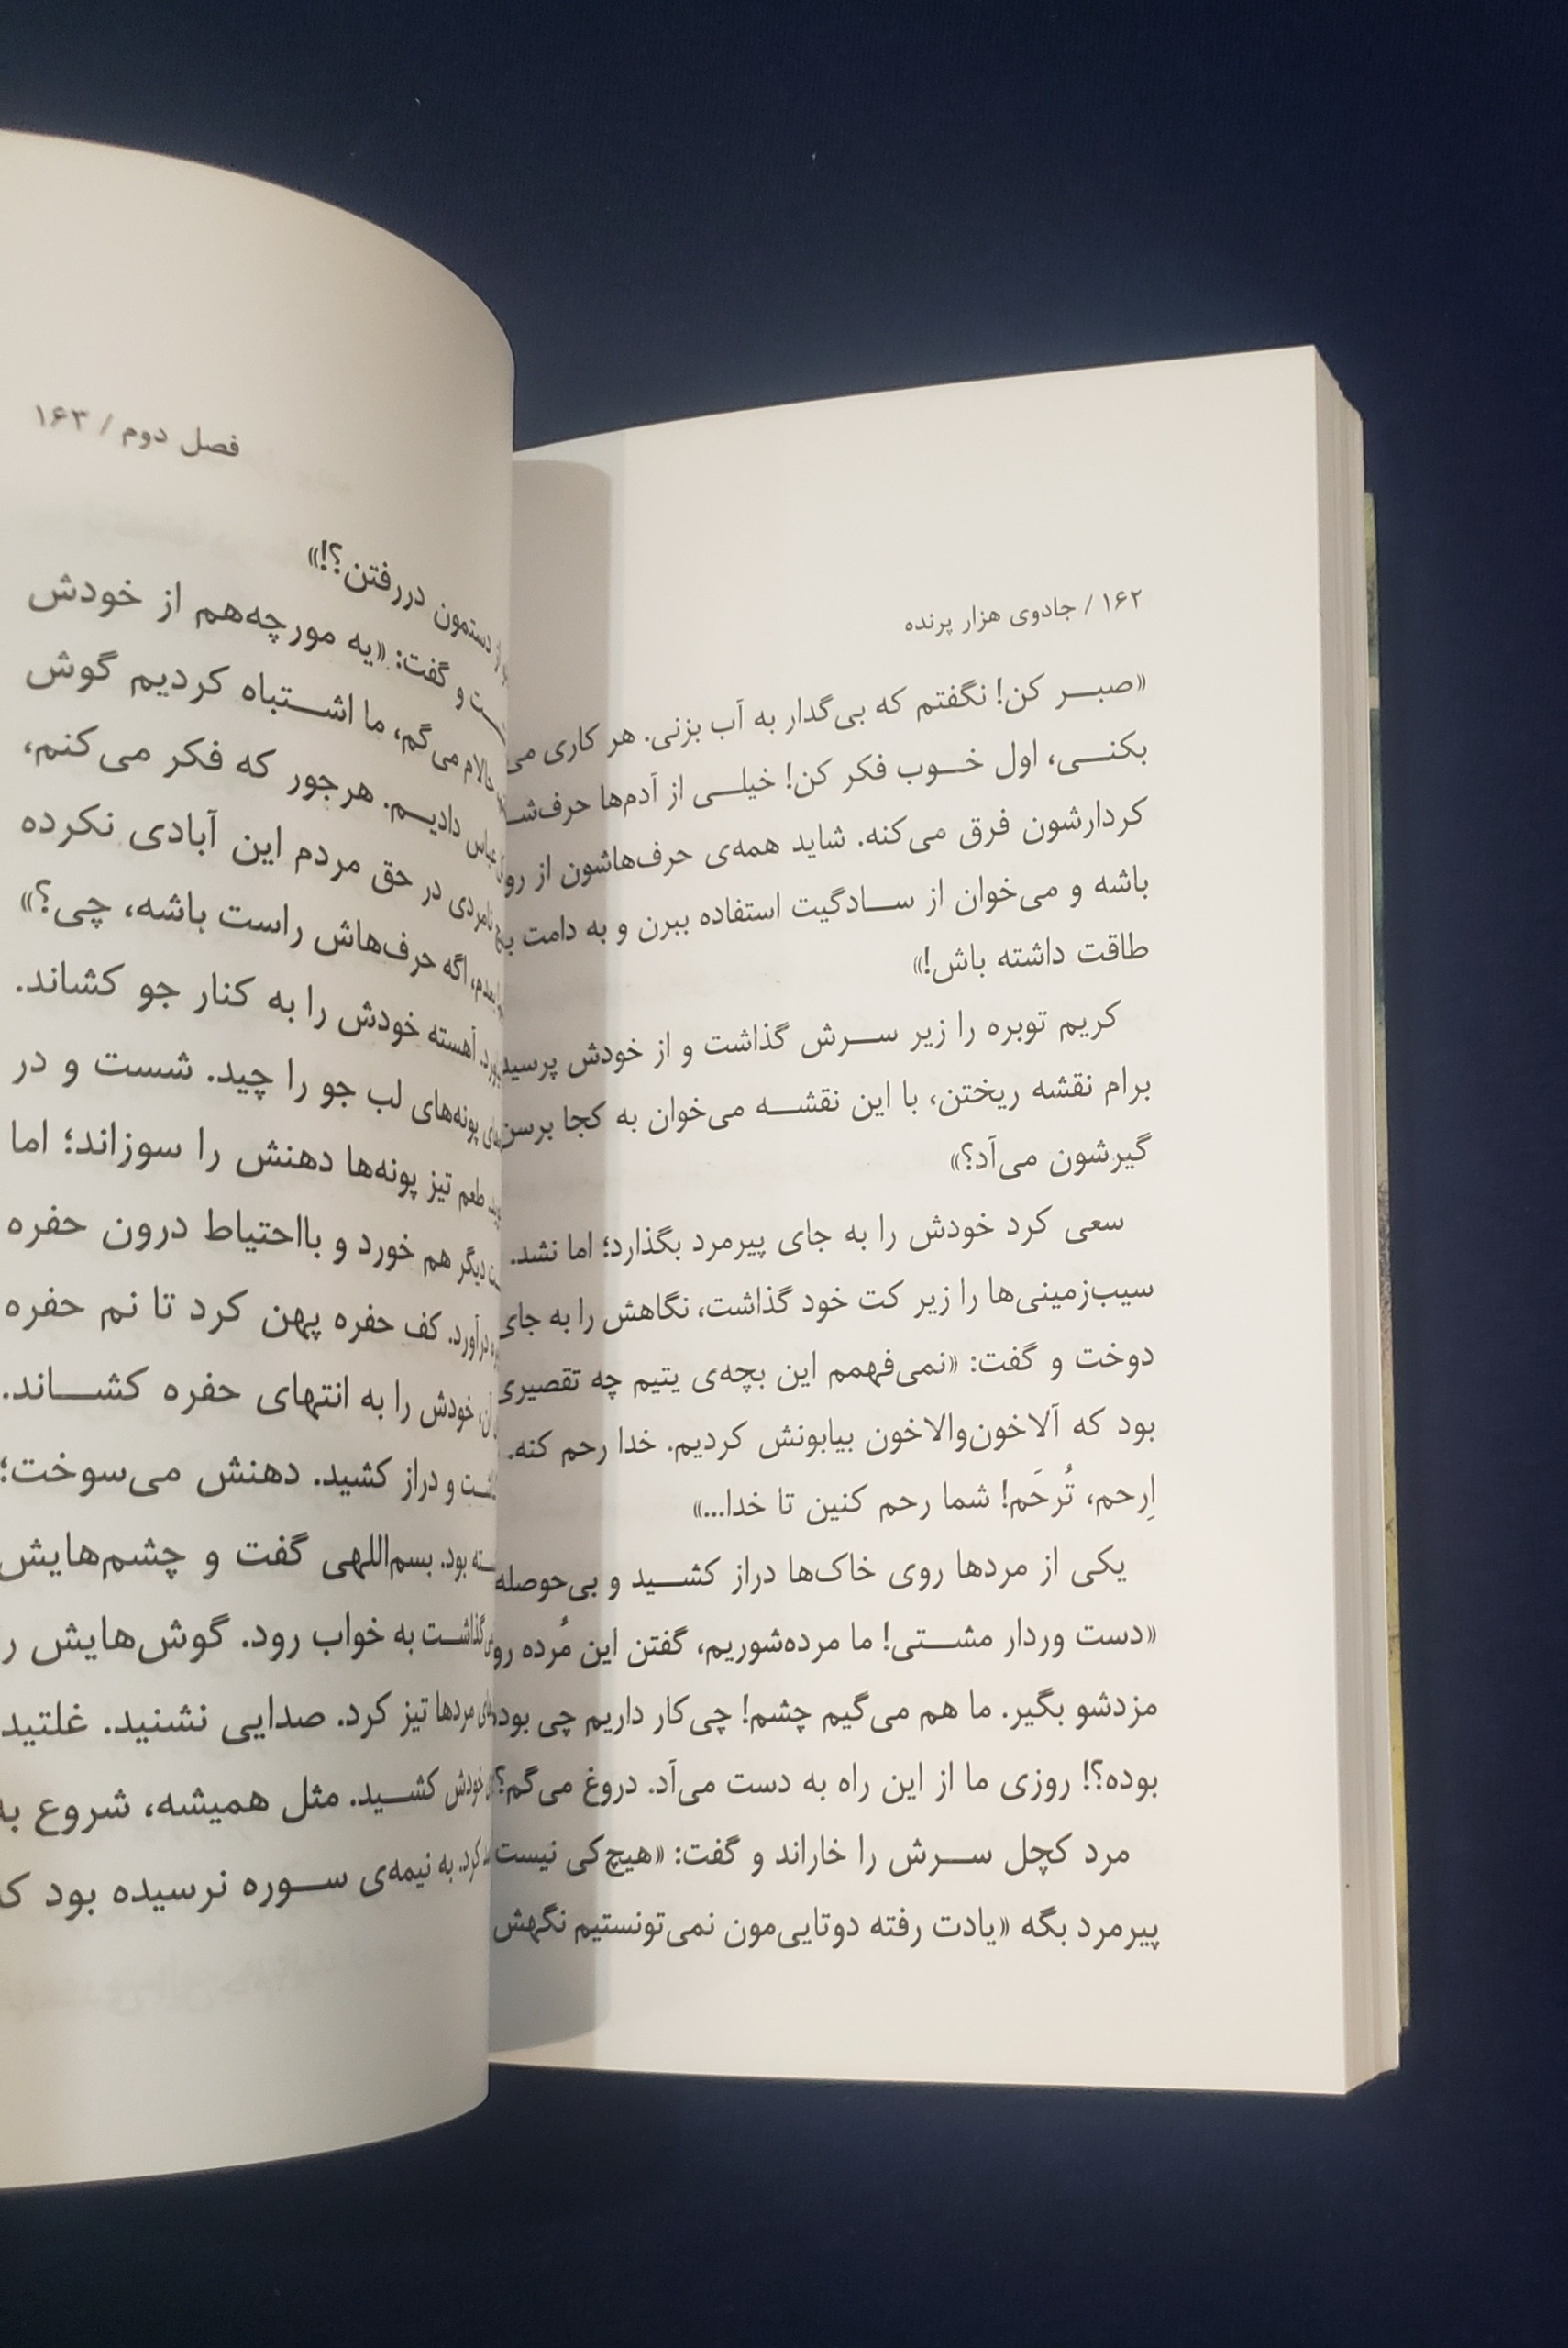 ۱۶۲ / جادوی هزار پرنده
«صبر کن! نگفتم که بی‌گدار به آب بزنی. هر کاری
بکنی، اول خوب فکر کن! خیلی از آدم‌ها
کردارشون فرق می‌کنه. شاید همه‌ی حرف‌هاشون از
باشه و می‌خوان از سادگیت استفاده ببرن و به دامت
طاقت داشته باش!»
کریم توبره را زیر سرش گذاشت و از خودش
برام نقشه ریختن، با این نقشه می‌خوان به کجا
گیرشون می‌آد؟»
سعی کرد خودش را به جای پیرمرد بگذارد؛ اما نشد.
سیب‌زمینی‌ها را زیر کت خود گذاشت، نگاهش را به جای
دوخت و گفت: «نمی‌فهمم این بچه‌ی یتیم چه تقصیری
بود که آلاخون‌والاخون بیابونش کردیم. خدا رحم کنه.
اِرحم، تُرحَم! شما رحم کنین تا خدا...»
یکی از مردها روی خاک‌ها دراز کشید و
«دست وردار مشتی! ما مرده‌شوریم، گفتن این مُرده
مزدشو بگیر. ما هم می‌گیم چشم! چی‌کار داریم چی
بوده؟! روزی ما از این راه به دست می‌آد. دروغ می‌گم؟
مرد کچل سرش را خاراند و گفت: «هیچ‌کی نیست
پیرمرد بگه «یادت رفته دوتایی‌مون نمی‌تونستیم نگهش
فصل دوم / ۱۶۳
دستمون دررفتن؟!»
و گفت: «یه مورچه‌هم از خودش
حالام می‌گم، ما اشتباه کردیم گوش
عباس دادیم. هرجور که فکر می‌کنم،
نامردی در حق مردم این آبادی نکرده
اگه حرف‌هاش راست باشه، چی؟»
آهسته خودش را به کنار جو کشاند.
پونه‌های لب جو را چید. شست و در
طعم تیز پونه‌ها دهنش را سوزاند؛ اما
دیگر هم خورد و بااحتیاط درون حفره
درآورد. کف حفره پهن کرد تا نم حفره
خودش را به انتهای حفره کشاند.
و دراز کشید. دهنش می‌سوخت؛
بود. بسم‌اللهی گفت و چشم‌هایش
به خواب رود. گوش‌هایش
مردها تیز کرد. صدایی نشنید. غلتید
خودش کشید. مثل همیشه، شروع
کرد. به نیمه‌ی سوره نرسیده بود